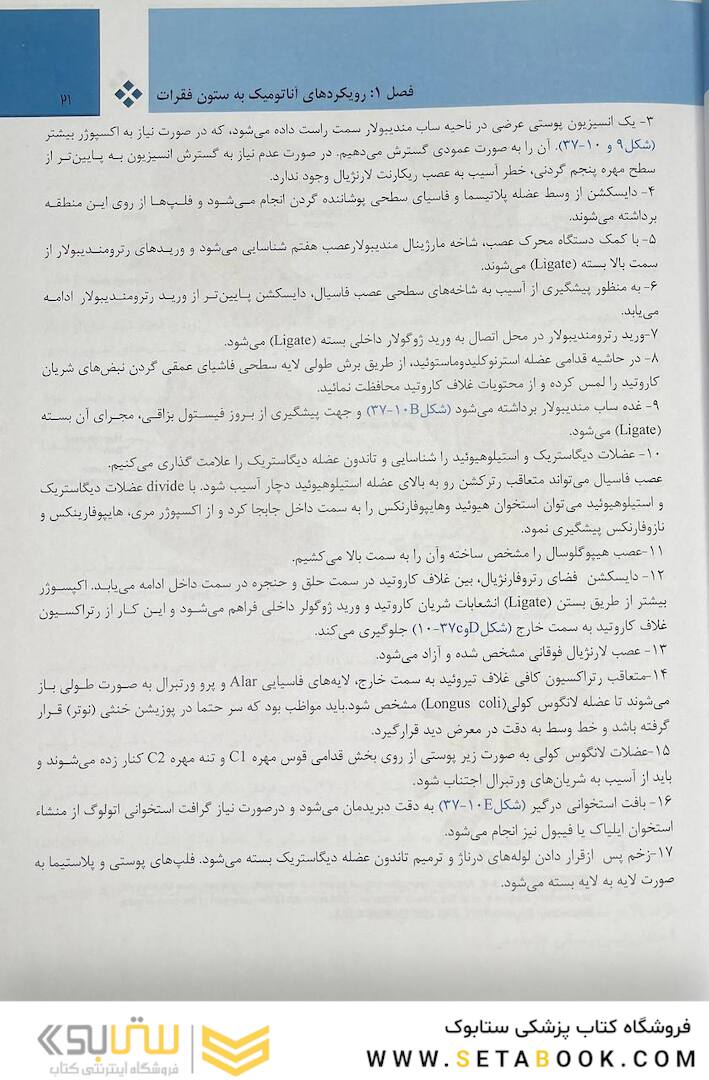 فصل ۱: رویکردهای آناتومیک به ستون فقرات
۲۱
۳- یک انسیزیون پوستی عرضی در ناحیه ساب مندیبولار سمت راست داده می‌شود، که در صورت نیاز به اکسپوژر بیشتر
(شکل۹ و ۱۰-۳۷). آن را به صورت عمودی گسترش می‌دهیم. در صورت عدم نیاز به گسترش انسیزیون به پایین‌تر از
سطح مهره پنجم گردنی، خطر آسیب به عصب ریکارنت لارنژیال وجود ندارد.
۴- دایسکشن از وسط عضله پلاتیسما و فاسیای سطحی پوشاننده گردن انجام می‌شود و فلپ‌ها از روی این منطقه
برداشته می‌شوند.
۵- با کمک دستگاه محرک عصب، شاخه مارژینال مندیبولارعصب هفتم شناسایی می‌شود و وریدهای رترومندیبولار از
سمت بالا بسته (Ligate) می‌شوند.
۶- به منظور پیشگیری از آسیب به شاخه‌های سطحی عصب فاسیال، دایسکشن پایین‌تر از ورید رترومندیبولار ادامه
می‌یابد.
۷-ورید رترومندیبولار در محل اتصال به ورید ژوگولار داخلی بسته (Ligate) می‌شود.
۸- در حاشیه قدامی عضله استرنوکلیدوماستوئید، از طریق برش طولی لایه سطحی فاشیای عمقی گردن نبض‌های شریان
کاروتید را لمس کرده و از محتویات غلاف کاروتید محافظت نمائید.
۹- غده ساب مندیبولار برداشته می‌شود (شکل۱۰B-۳۷) و جهت پیشگیری از بروز فیستول بزاقی، مجرای آن بسته
(Ligate) می‌شود.
۱۰- عضلات دیگاستریک و استیلوهیوئید را شناسایی و تاندون عضله دیگاستریک را علامت گذاری می‌کنیم.
عصب فاسیال می‌تواند متعاقب رترکشن رو به بالای عضله استیلوهیوئید دچار آسیب شود. با divide عضلات دیگاستریک
و استیلوهیوئید می‌توان استخوان هیوئید وهایپوفارنکس را به سمت داخل جابجا کرد و از اکسپوژر مری، هایپوفارینکس و
نازوفارنکس پیشگیری نمود.
۱۱-عصب هیپوگلوسال را مشخص ساخته وآن را به سمت بالا می‌کشیم.
۱۲- دایسکشن فضای رتروفارنژیال، بین غلاف کاروتید در سمت خارج و حنجره در سمت داخل ادامه می‌یابد. اکپسوژر
بیشتر از طریق بستن (Ligate) انشعابات شریان کاروتید و ورید ژوگولر داخلی فراهم می‌شود و این کار از رتراکسیون
غلاف کاروتید به سمت خارج (شکلDو۳۷c-۱۰) جلوگیری می‌کند.
۱۳- عصب لارنژیال فوقانی مشخص شده و آزاد می‌شود.
۱۴-متعاقب رتراکسیون کافی غلاف تیروئید به سمت خارج، لایه‌های فاسیایی Alar و پرو ورتبرال به صورت طولی باز
می‌شوند تا عضله لانگوس کولی(Longus coli) مشخص شود.باید مواظب بود که سر حتما در پوزیشن خنثی (نوتر) قرار
گرفته باشد و خط وسط به دقت در معرض دید قرارگیرد.
۱۵-عضلات لانگوس کولی به صورت زیر پوستی از روی بخش قدامی قوس مهره C1 و تنه مهره C2 کنار زده می‌شوند و
باید از آسیب به شریان‌های ورتبرال اجتناب شود.
۱۶- بافت استخوانی درگیر (شکل۱۰E-۳۷) به دقت دبریدمان می‌شود و درصورت نیاز گرافت استخوانی اتولوگ از منشاء
استخوان ایلیاک یا فیبول نیز انجام می‌شود.
۱۷-زخم پس ازقرار دادن لوله‌های درناژ و ترمیم تاندون عضله دیگاستریک بسته می‌شود. فلپ‌های پوستی و پلاستیما به
صورت لایه به لایه بسته می‌شود.
فروشگاه کتاب پزشکی ستابوک
WWW.SETABOOK.COM
ستابوک
فروشگاه اینترنتی کتاب